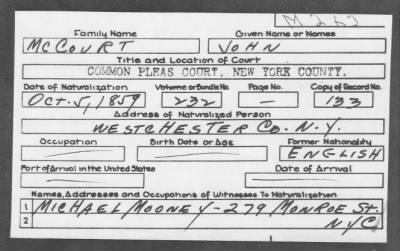 M 263
Family Name Given Name or Names
McCOURT JOHN
Title and Location of Court
COMMON PLEAS COURT, NEW YORK COUNTY.
Date of Naturalization Volume or Bundle No. Page No. Copy of Record No.
OCT. 5, 1859 232 — 133
Address of Naturalized Person
WESTCHESTER CO. N.Y.
Occupation Birth Date or Age Former Nationality
ENGLISH
Port of Arrival in the United States Date of Arrival
Names, Addresses and Occupations of Witnesses To Naturalization
1 MICHAEL MOONEY - 279 MONROE ST.
2 NYC